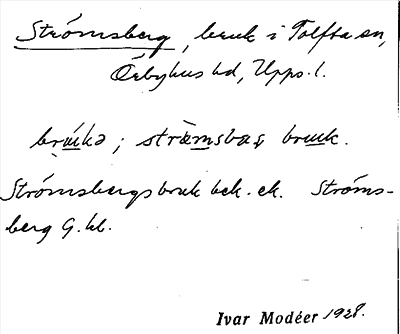 Strömsberg, bruk i Tolfta sn,
Örbyhus hd, Upps. l.
brúkə; stræ̀msbaʂ bruk.
Strömsbergsbruk bek. ek. Ströms-
berg G. kb.
Ivar Modéer 1928.